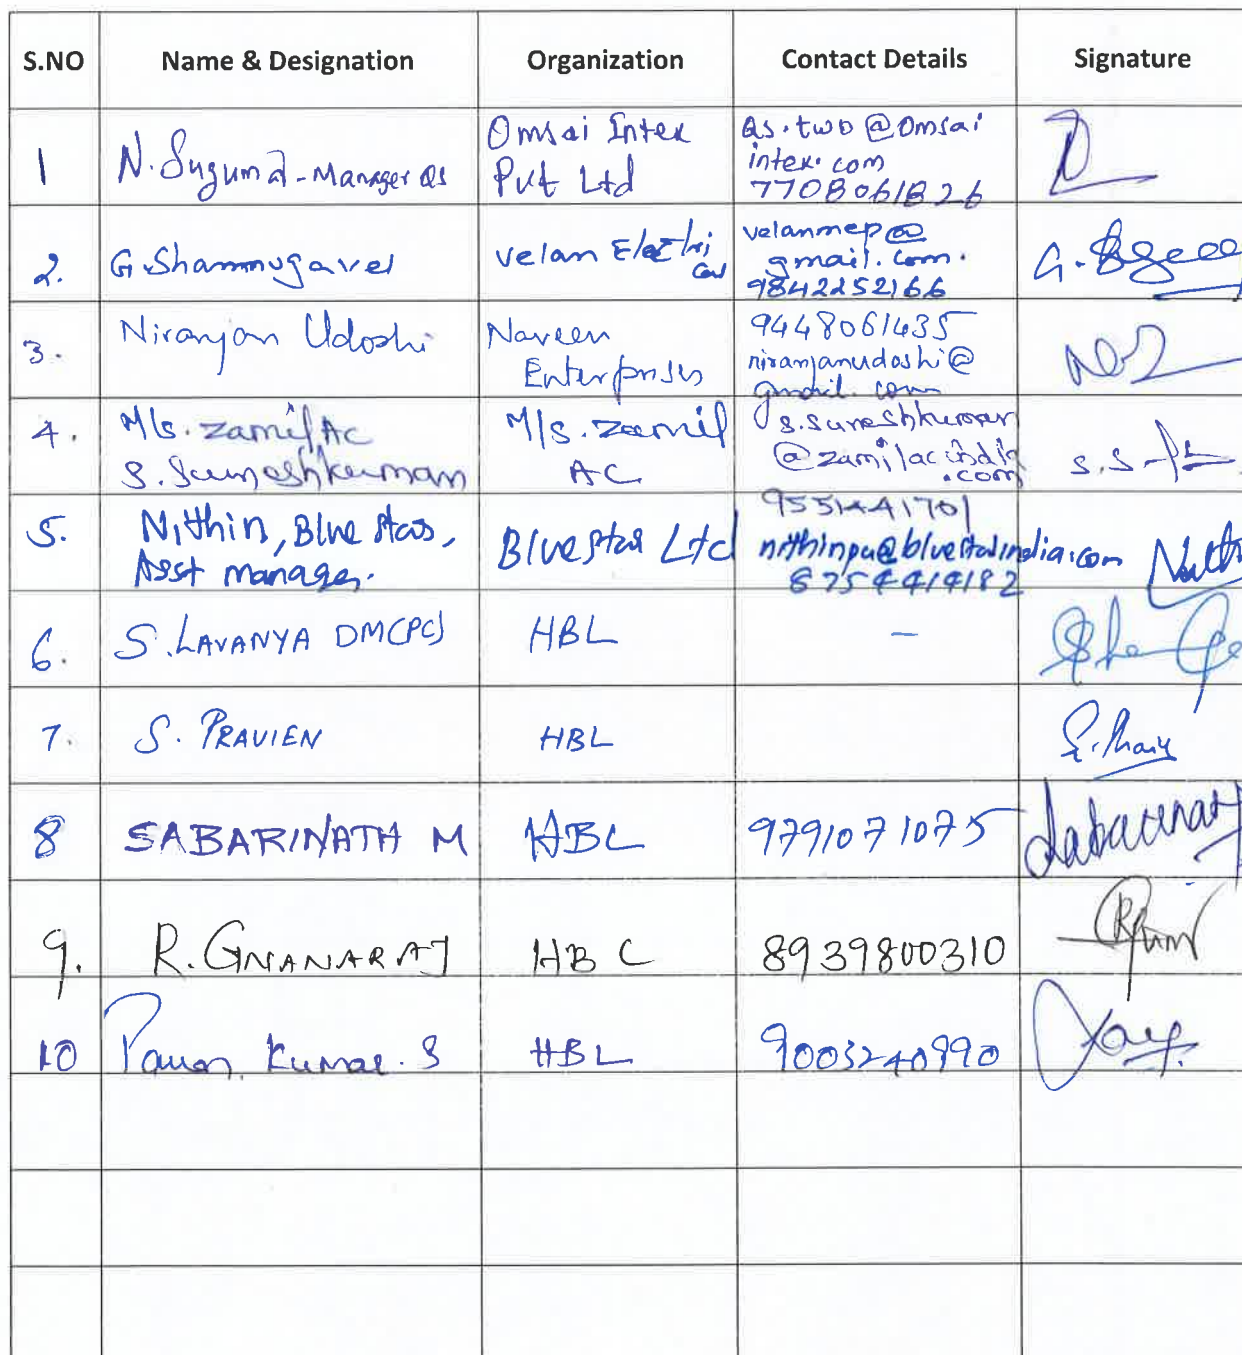 S.NO Name & Designation Organization Contact Details Signature
1 N. Suguma - Manager QS Omsai Intex Pvt Ltd qs.two@omsai intex.com 7708061826
2. G. Shanmugavel Velan Electri cal velanmep@ gmail.com. 9842252166
3. Niranjan Udoshi Naveen Enterprises 9448061435 niranjanudoshi@ gmail.com
4. M/s. Zamil AC S. Sureshkumar M/s. Zamil AC s.sureshkumar @zamilacindia .com
5. Nithin, Blue Star, Asst manager. Bluestar Ltd 9551441701 nithinpu@bluestarindia.com 8754414182
6. S. LAVANYA DM(PC) HBL –
7. S. PRAVIEN HBL
8 SABARINATH M HBL 9791071075 Sabarinath
9. R. GNANARAJ HBC 8939800310
10 Pavan Kumar. S HBL 9003240990